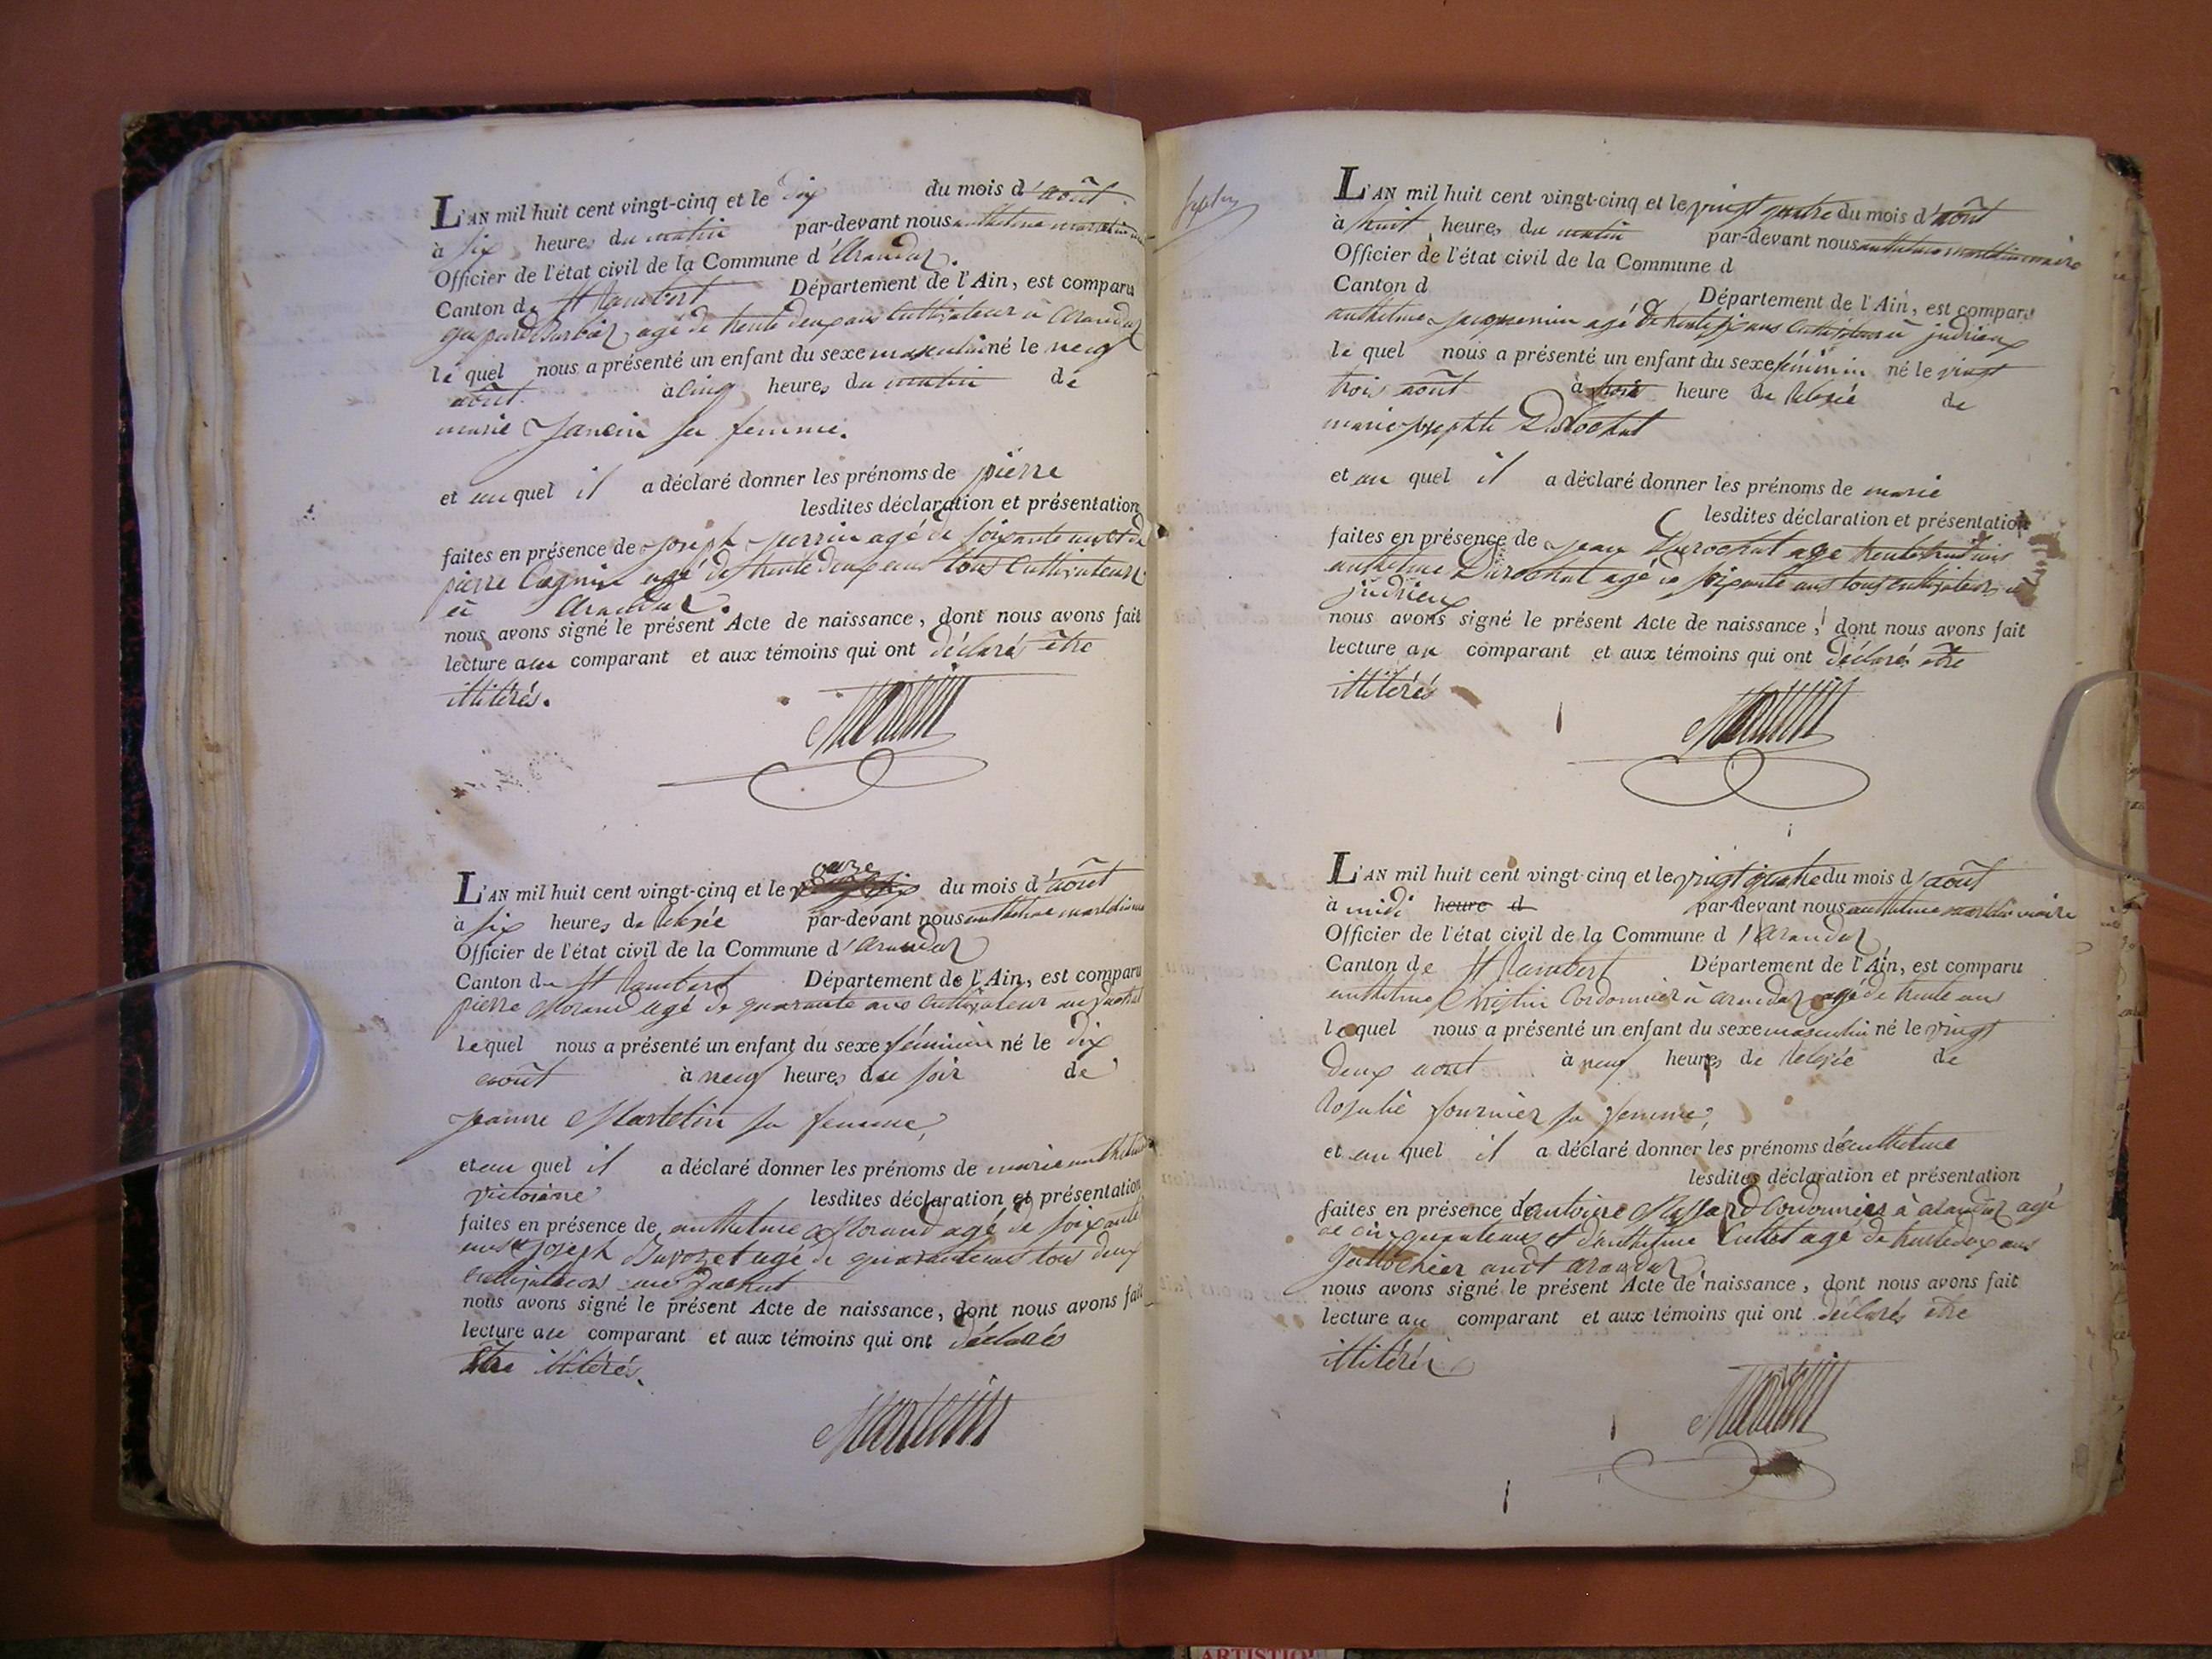 L'AN mil huit cent vingt-cinq et le dix du mois d'août
à six heures du matin par-devant nous anthelme martelin
Officier de l'état civil de la Commune d'Arandaz.
Canton de St Rambert Département de l'Ain, est comparu
gaspard Barbier agé de trente deux ans Cultivateur à Arandaz
le quel nous a présenté un enfant du sexe masculin né le neuf
août à cinq heures du matin de
marie Jancin sa femme.
et au quel il a déclaré donner les prénoms de pierre
lesdites déclaration et présentation
faites en présence de joseph perrin agé de soixante ans et de
pierre agé de trente deux ans tous Cultivateurs
à Arandaz.
nous avons signé le présent Acte de naissance, dont nous avons fait
lecture au comparant et aux témoins qui ont déclarés être
illitérés.
Martelin
L'AN mil huit cent vingt-cinq et le onze du mois d'août
à six heures de relevée par-devant nous anthelme martelin
Officier de l'état civil de la Commune d'arandaz
Canton de St Rambert Département de l'Ain, est comparu
pierre Morand agé de quarante ans Cultivateur au
le quel nous a présenté un enfant du sexe féminin né le dix
août à neuf heures du soir de
jeanne Martelin sa femme,
et au quel il a déclaré donner les prénoms de marie
victoire lesdites déclaration et présentation
faites en présence de anthelme Morand agé de soixante
ans et joseph agé de quarante ans tous deux
cultivateurs au
nous avons signé le présent Acte de naissance, dont nous avons fait
lecture au comparant et aux témoins qui ont déclarés
être illitérés.
Martelin
L'AN mil huit cent vingt-cinq et le vingt quatre du mois d'août
à huit heures du matin par-devant nous anthelme martelin maire
Officier de l'état civil de la Commune d
Canton d Département de l'Ain, est comparu
anthelme jacquemin agé de trente six ans Cultivateur à judrieux
le quel nous a présenté un enfant du sexe féminin né le vingt
trois août à trois heure de relevée de
marie josephte Durochat
et au quel il a déclaré donner les prénoms de marie
lesdites déclaration et présentation
faites en présence de jean Durochat agé trente huit ans
anthelme Durochat agé de soixante ans tous cultivateurs à
judrieux
nous avons signé le présent Acte de naissance, dont nous avons fait
lecture au comparant et aux témoins qui ont déclarés être
illitérés
Martelin
L'AN mil huit cent vingt-cinq et le vingt quatre du mois d'août
à midi heure d par-devant nous anthelme martelin maire
Officier de l'état civil de la Commune d'Arandaz
Canton de St Rambert Département de l'Ain, est comparu
anthelme Christin Cordonnier à arandaz agé de trente ans
le quel nous a présenté un enfant du sexe masculin né le vingt
deux aout à neuf heures de relevée de
Rosalie fournier sa femme,
et au quel il a déclaré donner les prénoms de anthelme
lesdites déclaration et présentation
faites en présence d'antoine Cordonnier à arandaz agé
de cinquante ans et d'anthelme Cullet agé de trente deux ans
audt arandaz
nous avons signé le présent Acte de naissance, dont nous avons fait
lecture au comparant et aux témoins qui ont déclarés être
illitérés
Martelin